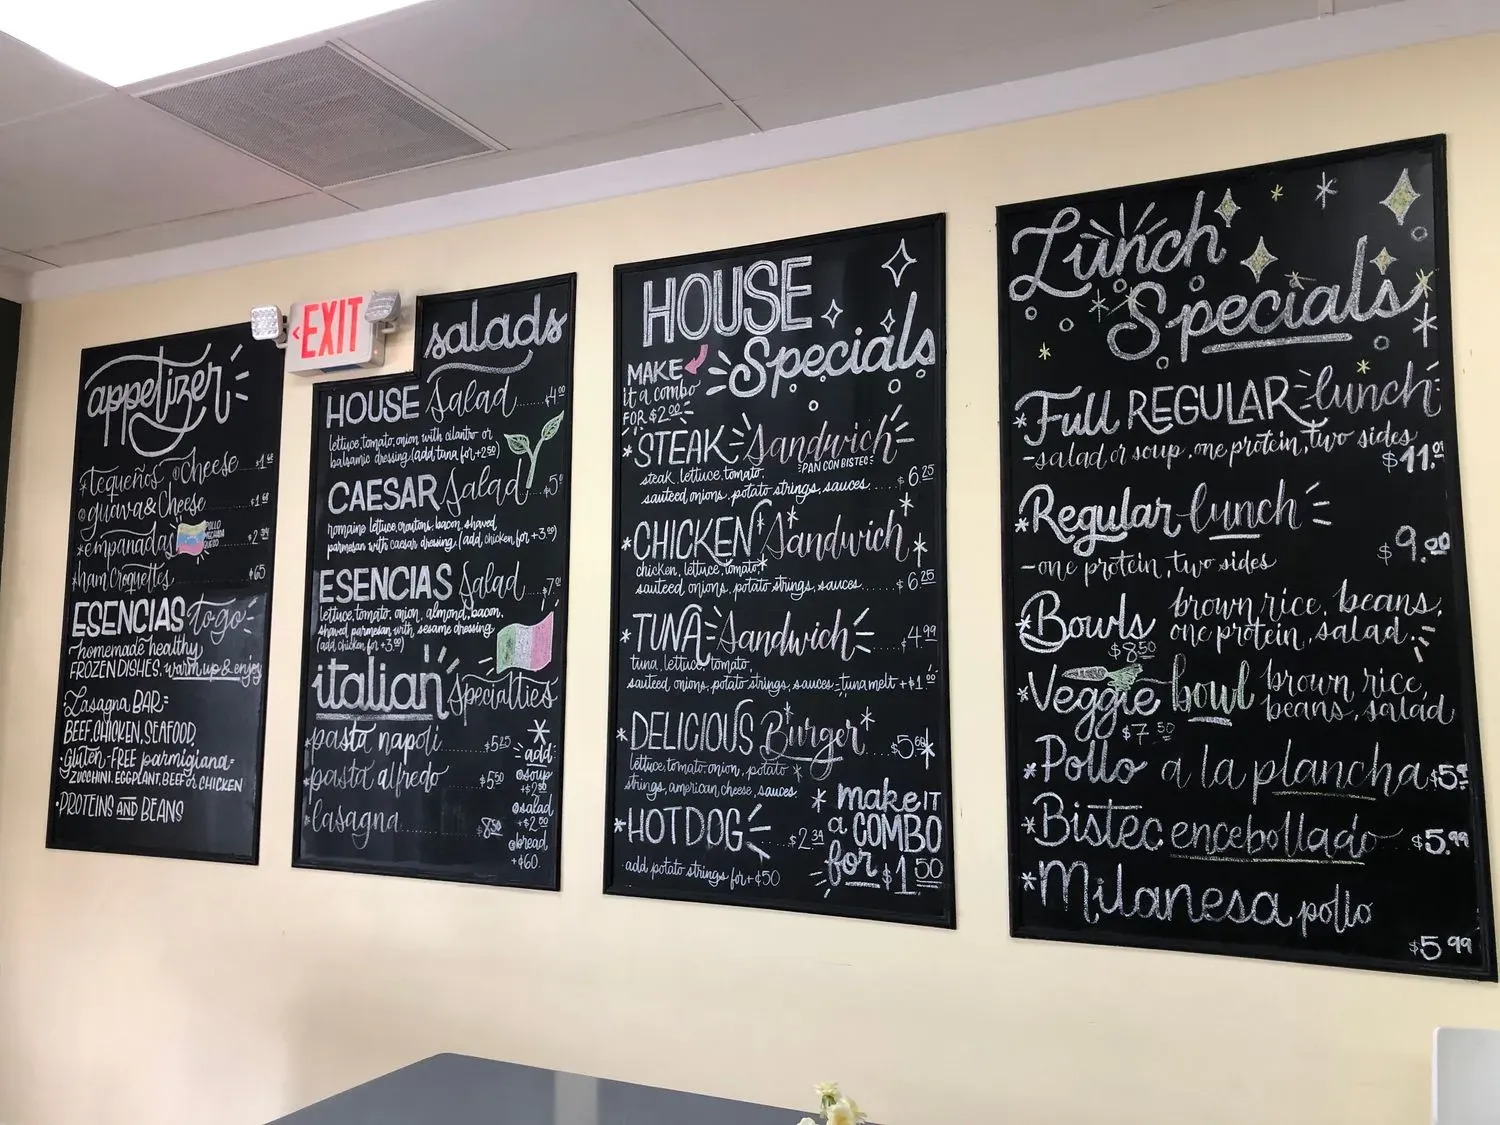 appetizer
*tequeños @cheese ......$1
@guava & Cheese ......$1
*empanadas ......$2
POLLO
MECHADA
QUESO
*ham Croquettes ......$65
ESENCIAS to go
homemade healthy
FROZEN DISHES. warm up & enjoy
*Lasagna BAR=
BEEF, CHICKEN, SEAFOOD,
*Gluten-FREE parmigiana=
ZUCCHINI, EGGPLANT, BEEF or CHICKEN
*PROTEINS AND BEANS
EXIT
salads
HOUSE Salad ......$4.00
lettuce, tomato, onion with cilantro or
balsamic dressing. (add tuna for +2.50)
CAESAR Salad ...$5
romaine lettuce, croutons, bacon, shaved
parmesan with caesar dressing. (add chicken for +3.00)
ESENCIAS Salad ......$7
lettuce, tomato, onion, almond, bacon,
shaved parmesan with sesame dressing
(add chicken for +3.00)
italian Specialties
*pasta napoli ......$5.25
*pasta alfredo ......$5.50
*lasagna ......$8.50
*add:
@soup
+$2.50
@salad
+$2.50
@bread
+$60.
HOUSE
Specials
MAKE
it a combo
FOR $2.00
*STEAK Sandwich
PAN CON BISTEC
steak, lettuce, tomato,
sauteed onions, potato strings, sauces ...$6.25
*CHICKEN Sandwich
chicken, lettuce, tomato,
sauteed onions, potato strings, sauces ...$6.25
*TUNA Sandwich ...$4.99
tuna, lettuce, tomato,
sauteed onions, potato strings, sauces - tuna melt +$1.00
*DELICIOUS Burger ...$5
lettuce, tomato, onion, potato
strings, american cheese, sauces
*HOT DOG ......$2.34
add potato strings for +$50
*make IT
a COMBO
for $1.50
Lunch
Specials
*Full REGULAR lunch
-salad or soup, one protein, two sides
$11.
*Regular lunch
$9.00
-one protein, two sides
*Bowls brown rice, beans,
one protein, salad.
$8.50
*Veggie bowl brown rice,
beans, salad
$7.50
*Pollo a la plancha $5.
*Bistec encebollado $5.99
*Milanesa pollo
$5.99